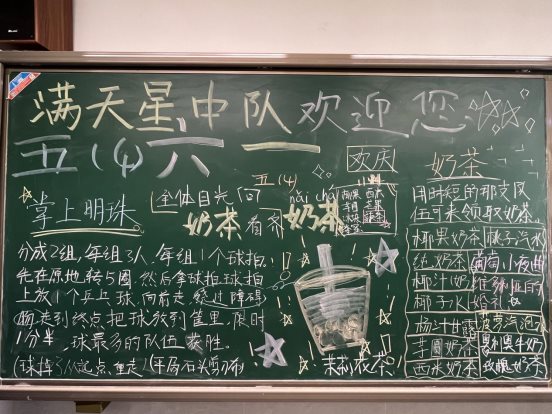 满天星中队欢迎您
五(4)六
欢庆
奶茶
五(4)
nǎi chá
掌上明珠
全体目光向
奶茶看齐
奶茶
用时短的那支队
伍可来领取奶茶。
分成2组,每组3人,每组1个球拍
先在原地转5圈,然后拿球拍,球拍
上放1个乒乓球,向前走,绕过障碍
物,走到终点把球放到筐里,限时
1分半,球最多的队伍获胜。
(球掉了从起点重走)(平局石头剪刀布)
茉莉花茶
椰果奶茶
桃子汽水
纯奶茶
葡萄小夜曲
椰汁奶
椰子水
婚礼
杨汁甘露
菠萝汽泡水
芋圆奶茶
奥利奥牛奶
西米奶茶
玫瑰奶茶